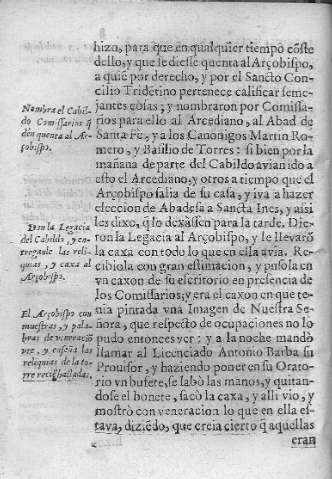 hizo, para que en qualquier tiempo cõste
dello, y que le diesse quenta al Arçobispo,
a quiẽ por derecho, y por el Sancto Con-
cilio Tridẽtino pertenece calificar seme-
jantes cosas; y nombraron por Comissa-
rios para ello al Arcediano, al Abad de
Santa Fe, y a los Canonigos Martin Ro-
mero, y Basilio de Torres: si bien por la
mañana de parte del Cabildo avian ido a
esto el Arcediano, y otros a tiempo que el
Arçobispo salia de su casa, y iva a hazer
eleccion de Abadesa a Sancta Ines, y asi
les dixo, q̃ lo dexassen para la tarde. Die-
ron la Legacia al Arçobispo, y le llevarõ
la caxa con todo lo que en ella avia. Re-
cibiola con gran estimacion, y pusola en
vn caxon de su escritorio en presencia de
los Comissarios; y era el caxon en que te-
nia pintada vna Imagen de Nuestra Se-
ñora, que respecto de ocupaciones no lo
pudo entonces ver; y a la noche mandò
llamar al Licenciado Antonio Barba su
Prouisor, y haziendo poner en su Orato-
rio vn bufete, se labò las manos, y quitan-
dose el bonete, sacò la caxa, y alli vio, y
mostrò con veneracion lo que en ella es-
tava, diziẽdo, que creia cierto q̃ aquellas
eran
Nombra el Cabil-
do Comissarios q̃
dèn quenta al Ar-
çobispo.
Dan la Legacia
del Cabildo, y en-
treganle las reli-
quias, y caxa al
Arçobispo.
El Arçobispo con
muestras, y pala-
bras de veneracio
vee, y enseña las
reliquias de la to-
rre reciẽ halladas.